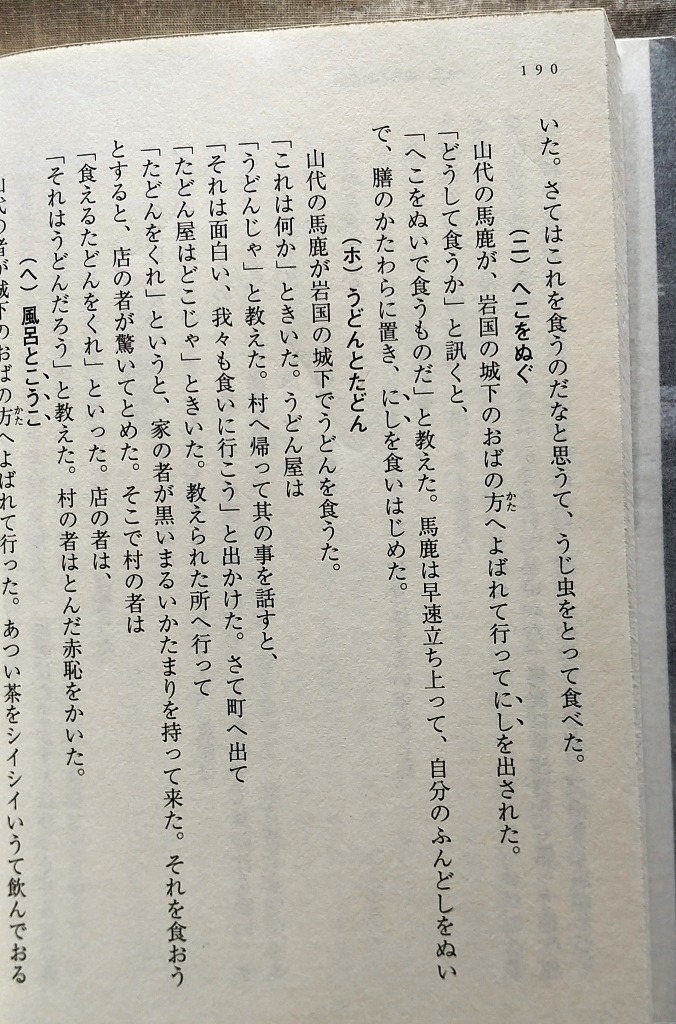 190
いた。さてはこれを食うのだなと思うて、うじ虫をとって食べた。
(ニ) へこをぬぐ
山代の馬鹿が、岩国の城下のおばの方へよばれて行ってにしを出された。
かた
「どうして食うか」と訊くと、
「へこをぬいで食うものだ」と教えた。馬鹿は早速立ち上って、自分のふんどしをぬい
で、膳のかたわらに置き、にしを食いはじめた。
(ホ) うどんとたどん
山代の馬鹿が岩国の城下でうどんを食うた。
「これは何か」ときいた。うどん屋は
「うどんじゃ」と教えた。村へ帰って其の事を話すと、
「それは面白い、我々も食いに行こう」と出かけた。さて町へ出て
「たどん屋はどこじゃ」ときいた。教えられた所へ行って
「たどんをくれ」というと、家の者が黒いまるいかたまりを持って来た。それを食おう
とすると、店の者が驚いてとめた。そこで村の者は
「食えるたどんをくれ」といった。店の者は、
「それはうどんだろう」と教えた。村の者はとんだ赤恥をかいた。
(ヘ) 風呂とこうこ
山代の者が城下のおばの方へよばれて行った。あつい茶をシイシイいうて飲んでおる
かた